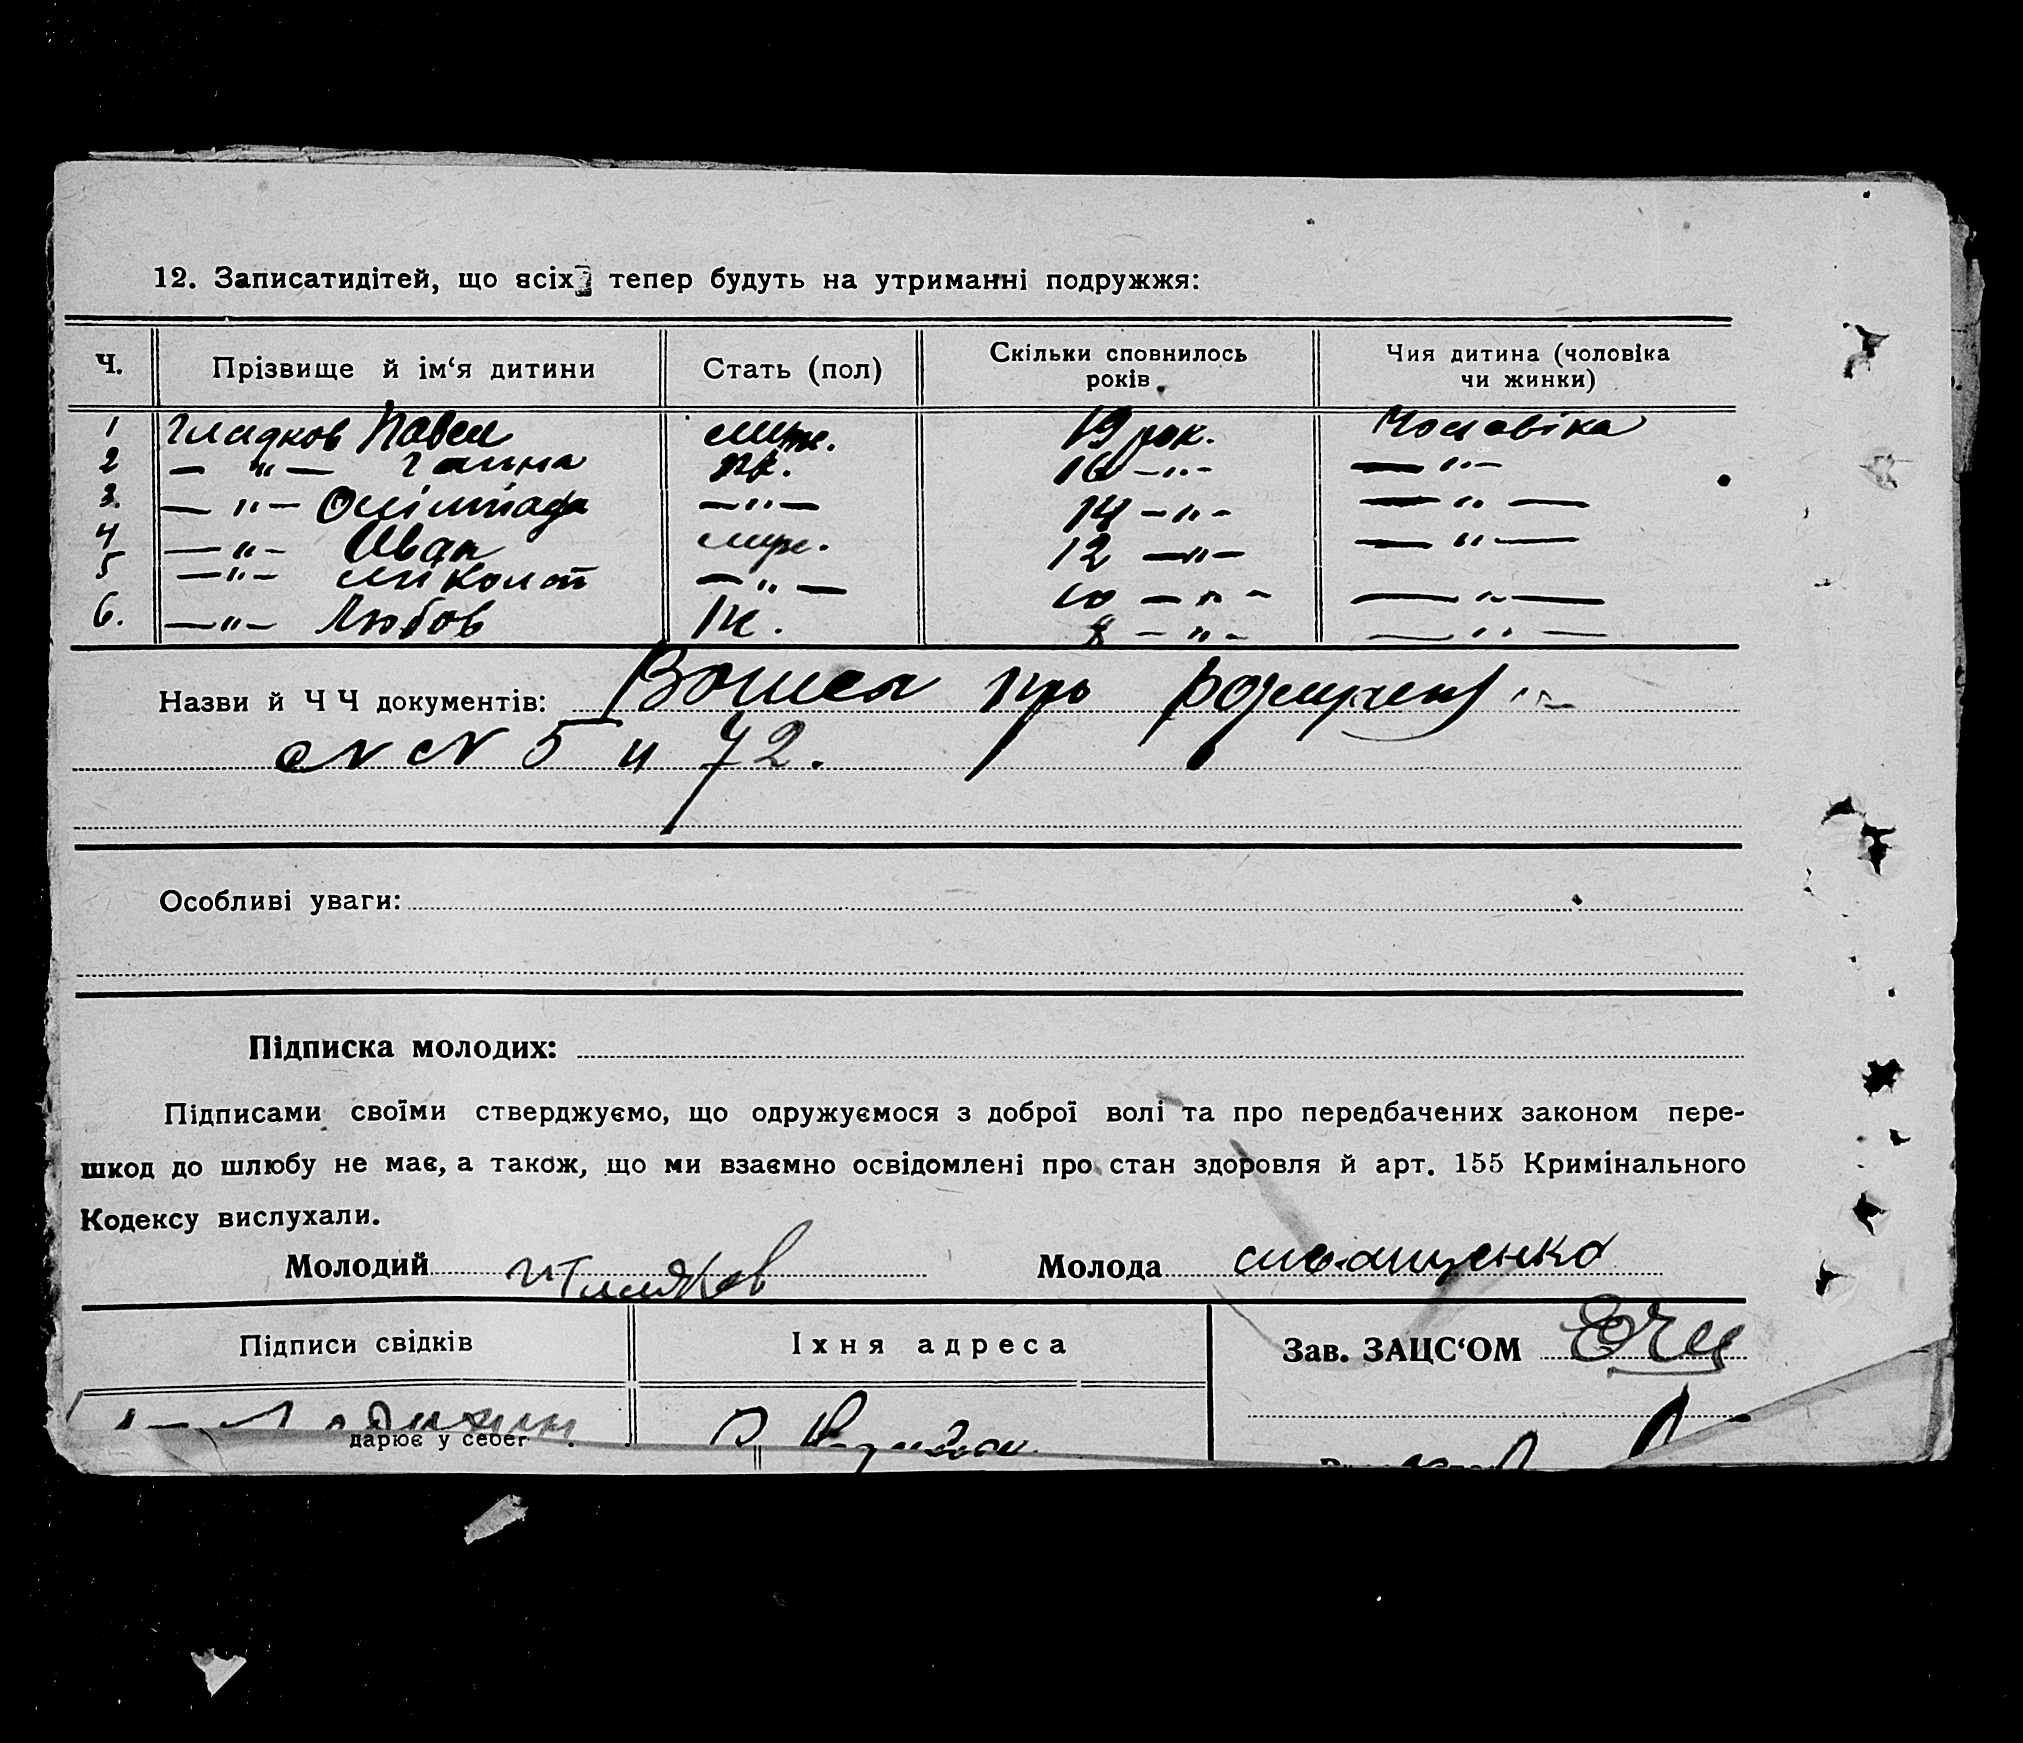 12. Записатидітей, що всіх тепер будуть на утриманні подружжя:
Ч. Прізвище й ім‘я дитини Стать (пол) Скільки сповнилось років Чия дитина (чоловіка чи жинки)
1 Гладков Павел муж. 19 рок. Чоловіка
2 — " — Ганна ж. 16 — " — — " —
3. — " — Олімпіада — " — 14 — " — — " —
4 — " — Иван муж. 12 — " — — " —
5 — " — Микола — " — 10 — " — — " —
6. — " — Любов ж. 8 — " — — " —
Назви й Ч Ч документів: про
NN 5 и 72.
Особливі уваги:
Підписка молодих:
Підписами своїми стверджуємо, що одружуємося з доброї волі та про передбачених законом пере-
шкод до шлюбу не має, а також, що ми взаємно освідомлені про стан здоровля й арт. 155 Кримінального
Кодексу вислухали.
Молодий Молода
Підписи свідків Їхня адреса Зав. ЗАЦС‘ОМ
дарює у себег